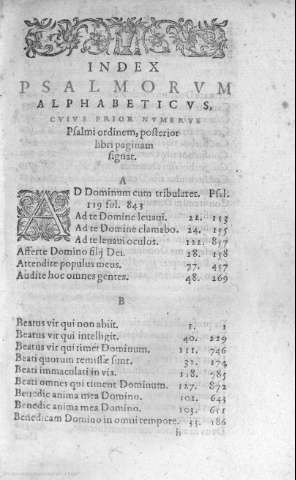 INDEX
PSALMORVM
ALPHABETICVS,
CVIVS PRIOR NVMERVS
Psalmi ordinem, posterior
libri paginam
signat.
A
AD Dominum cum tribularer. Psal.
119 fol. 843
Ad te Domine leuaui. 24. 153
Ad te Domine clamabo. 24. 155
Ad te leuaui oculos. 122. 857
Afferte Domino filij Dei. 28. 158
Attendite populus meus. 77. 457
Audite hoc omnes gentes. 48. 269
B
Beatus vir qui non abiit. 1. 1
Beatus vir qui intelligit. 40. 229
Beatus vir qui timet Dominum. 111. 746
Beati quorum remissæ sunt. 31. 174
Beati immaculati in via. 118. 785
Beati omnes qui timent Dominum. 127. 872
Benedic anima mea Domino. 102. 643
Benedic anima mea Domino. 103. 651
Benedicam Domino in omni tempore. 33. 186
h